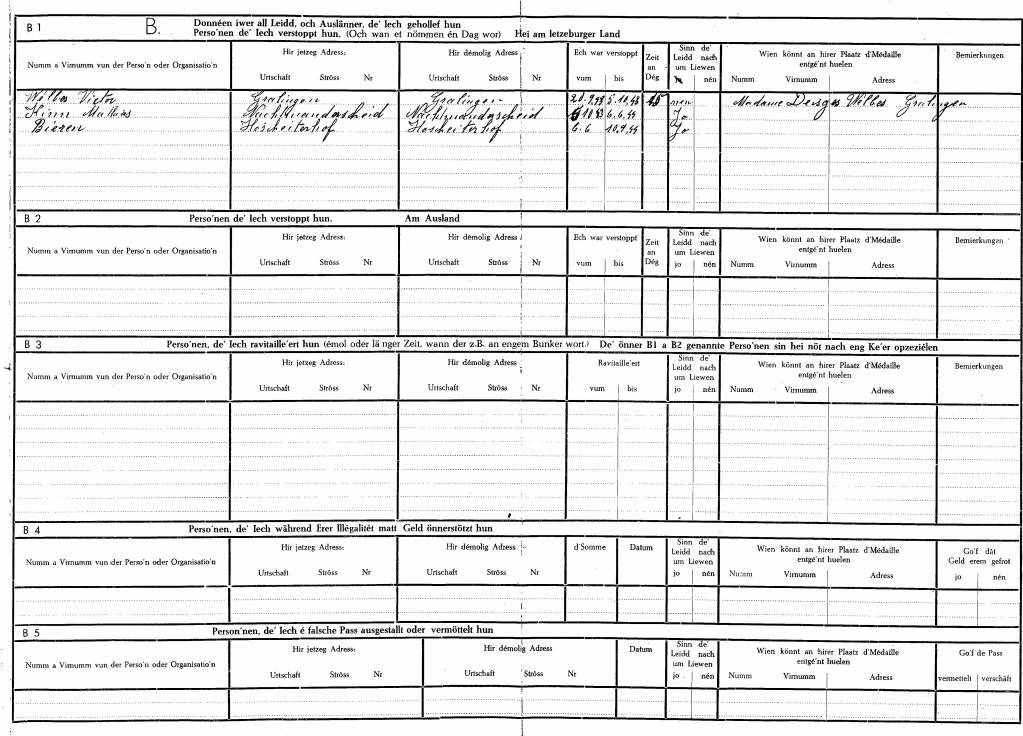 B 1 B. Donnéen iwer all Leidd, och Auslänner, de' Iech gehollef hun
Perso'nen de' Iech verstoppt hun. (Och wan et nömmen én Dag wor) Hei am letzeburger Land
Numm a Virnumm vun der Perso'n oder Organisatio'n
Hir jetzeg Adress:
Urtschaft Ströss Nr
Hir démolig Adress
Urtschaft Ströss Nr
Ech war verstoppt
vum bis
Zeit an Dég
Sinn de' Leidd nach um Liewen
nén
Wien könnt an hirer Plaatz d'Médaille entgé'nt huelen
Numm Virnumm Adress
Bemierkungen
Welbes Victor Gralingen Gralingen 20.9.43 5.10.43 15 nen Madame Welbes Gralingen
Kinn Mathias Nachtmanderscheid Nachtmanderscheid 10 43 6.6.44 Jo
Bieren Hoscheiterhof Hoscheiterhof 6.6 10.9.44 Jo
B 2 Perso'nen de' Iech verstoppt hun. Am Ausland
Numm a Virnumm vun der Perso'n oder Organisatio'n
Hir jetzeg Adress:
Urtschaft Ströss Nr
Hir démolig Adress
Urtschaft Ströss Nr
Ech war verstoppt
vum bis
Zeit an Dég
Sinn de' Leidd nach um Liewen
jo nén
Wien könnt an hirer Plaatz d'Médaille entgé'nt huelen
Numm Virnumm Adress
Bemierkungen
B 3 Perso'nen, de' Iech ravitaille'ert hun (émol oder lä nger Zeit, wann der z.B. an engem Bunker wort.) De' önner B1 a B2 genannte Perso'nen sin hei nöt nach eng Ke'er opzeziélen
Numm a Virnumm vun der Perso'n oder Organisatio'n
Hir jetzeg Adress:
Urtschaft Ströss Nr
Hir démolig Adress
Urtschaft Ströss Nr
Ravitaille'ert
vum bis
Sinn de' Leidd nach um Liewen
jo nén
Wien könnt an hirer Plaatz d'Médaille entgé'nt huelen
Numm Virnumm Adress
Bemierkungen
B 4 Perso'nen, de' Iech während Erer Illégalitét matt Geld önnerstötzt hun
Numm a Virnumm vun der Perso'n oder Organisatio'n
Hir jetzeg Adress:
Urtschaft Ströss Nr
Hir démolig Adress
Urtschaft Ströss Nr
d'Somme
Datum
Sinn de' Leidd nach um Liewen
jo nén
Wien könnt an hirer Plaatz d'Médaille entgé'nt huelen
Numm Virnumm Adress
Go'f dât Geld erem gefrot
jo nén
B 5 Person'nen, de' Iech é falsche Pass ausgestallt oder vermöttelt hun
Numm a Virnumm vun der Perso'n oder Organisatio'n
Hir jetzeg Adress:
Urtschaft Ströss Nr
Hir démolig Adress
Urtschaft Ströss Nr
Datum
Sinn de' Leidd nach um Liewen
jo nén
Wien könnt an hirer Plaatz d'Médaille entgé'nt huelen
Numm Virnumm Adress
Go'f de Pass
vermettelt verschäft